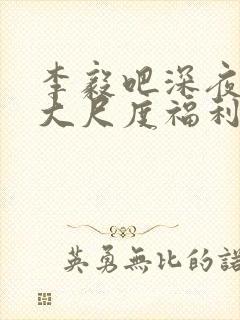 李毅吧深夜
大尺度福利
英勇無比的諾